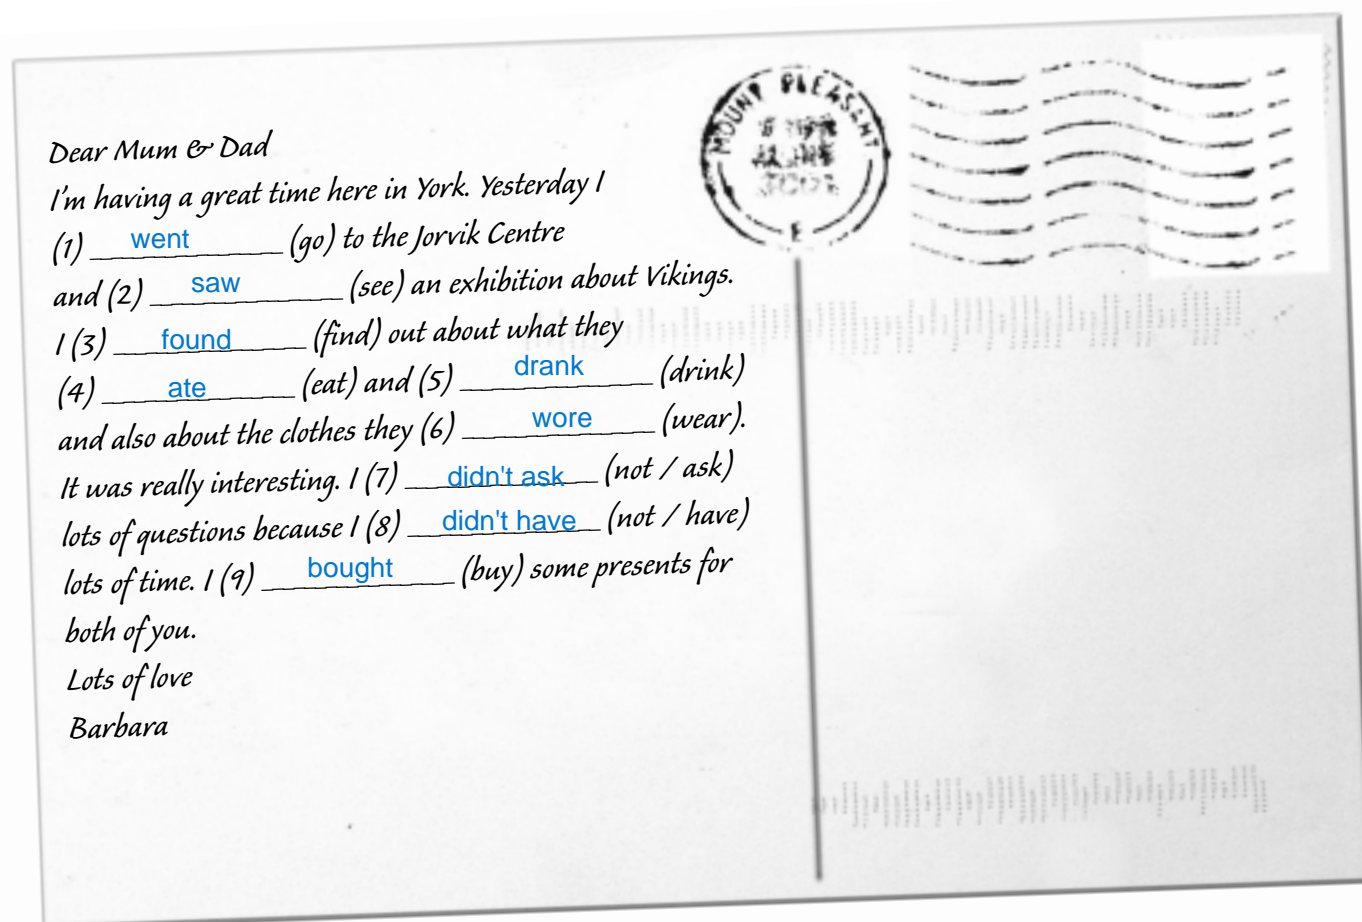 Dear Mum & Dad
I'm having a great time here in York. Yesterday I
(1) went (go) to the Jorvik Centre
and (2) saw (see) an exhibition about Vikings.
I (3) found (find) out about what they
(4) ate (eat) and (5) drank (drink)
and also about the clothes they (6) wore (wear).
It was really interesting. I (7) didn't ask (not / ask)
lots of questions because I (8) didn't have (not / have)
lots of time. I (9) bought (buy) some presents for
both of you.
Lots of love
Barbara
MOUNT PLEASANT
E